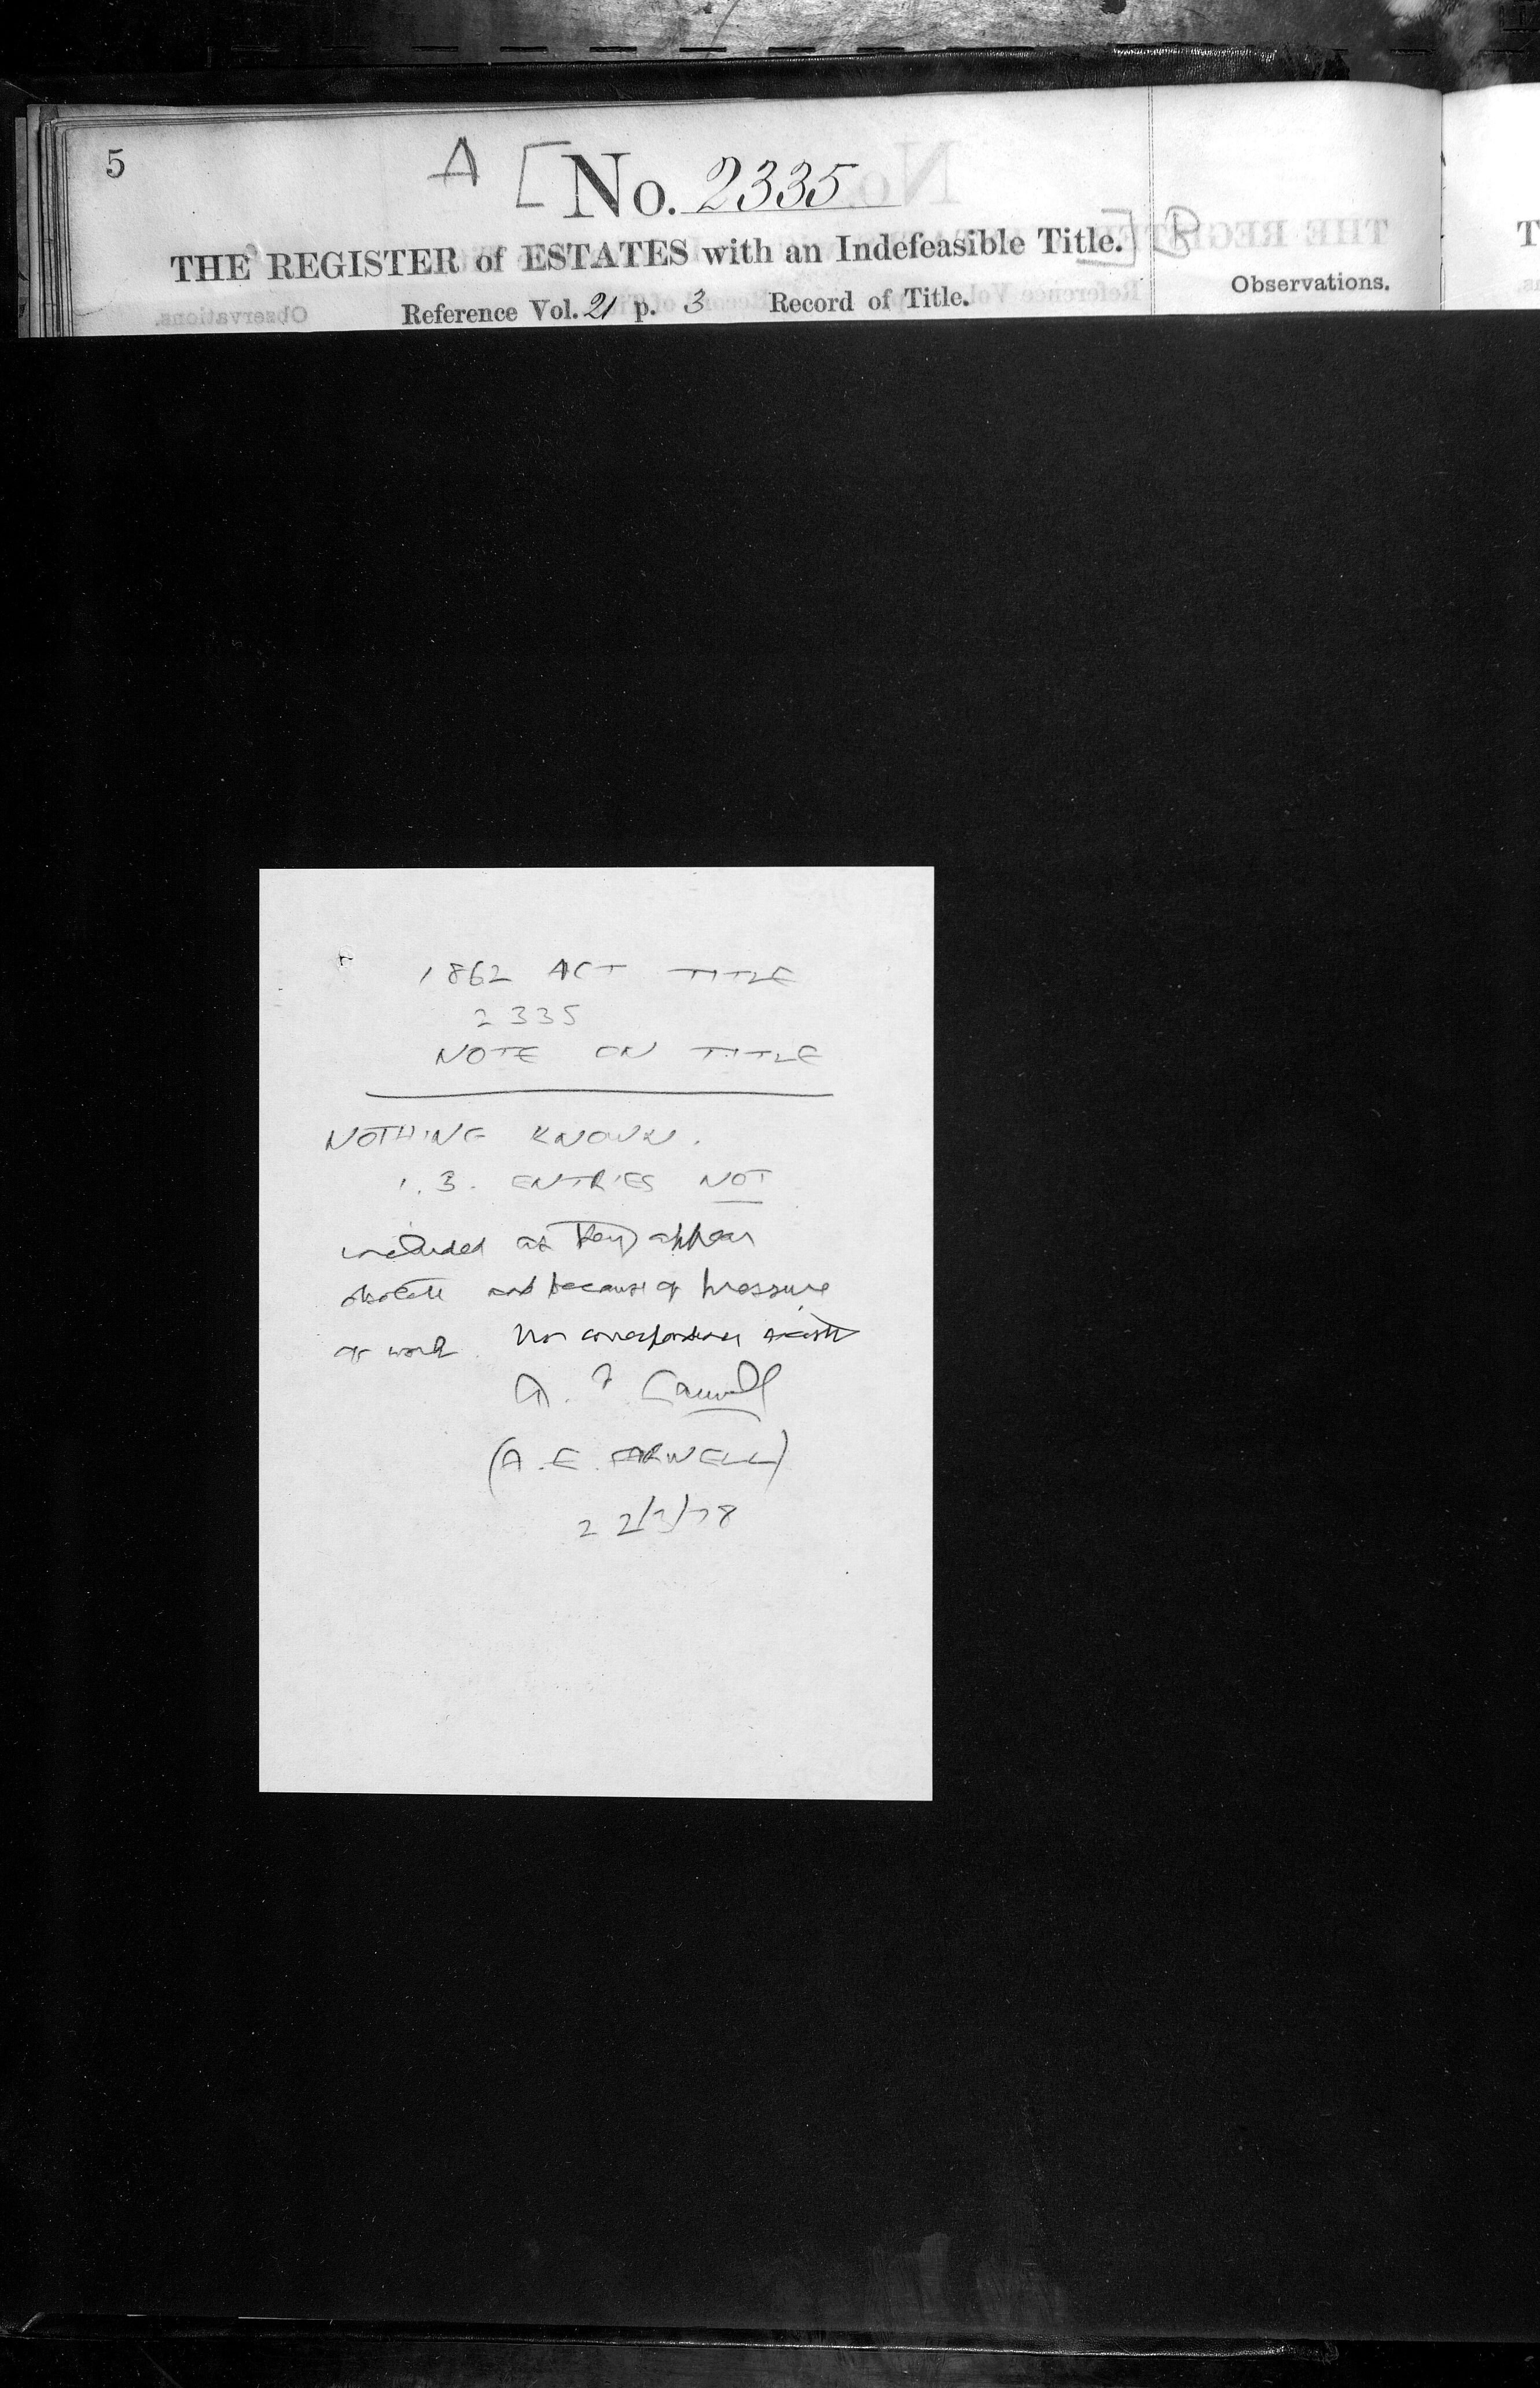 5
A [No. 2335
THE REGISTER of ESTATES with an Indefeasible Title.] B
Observations.
Reference Vol. 21 p. 3 Record of Title.
1862 ACT TITLE
2335
NOTE ON TITLE
NOTHING KNOWN.
1.3. ENTRIES NOT
included as they appear
obsolete and because of pressure
of work. No correspondence exists
(A.E. FARWELL)
22/3/78